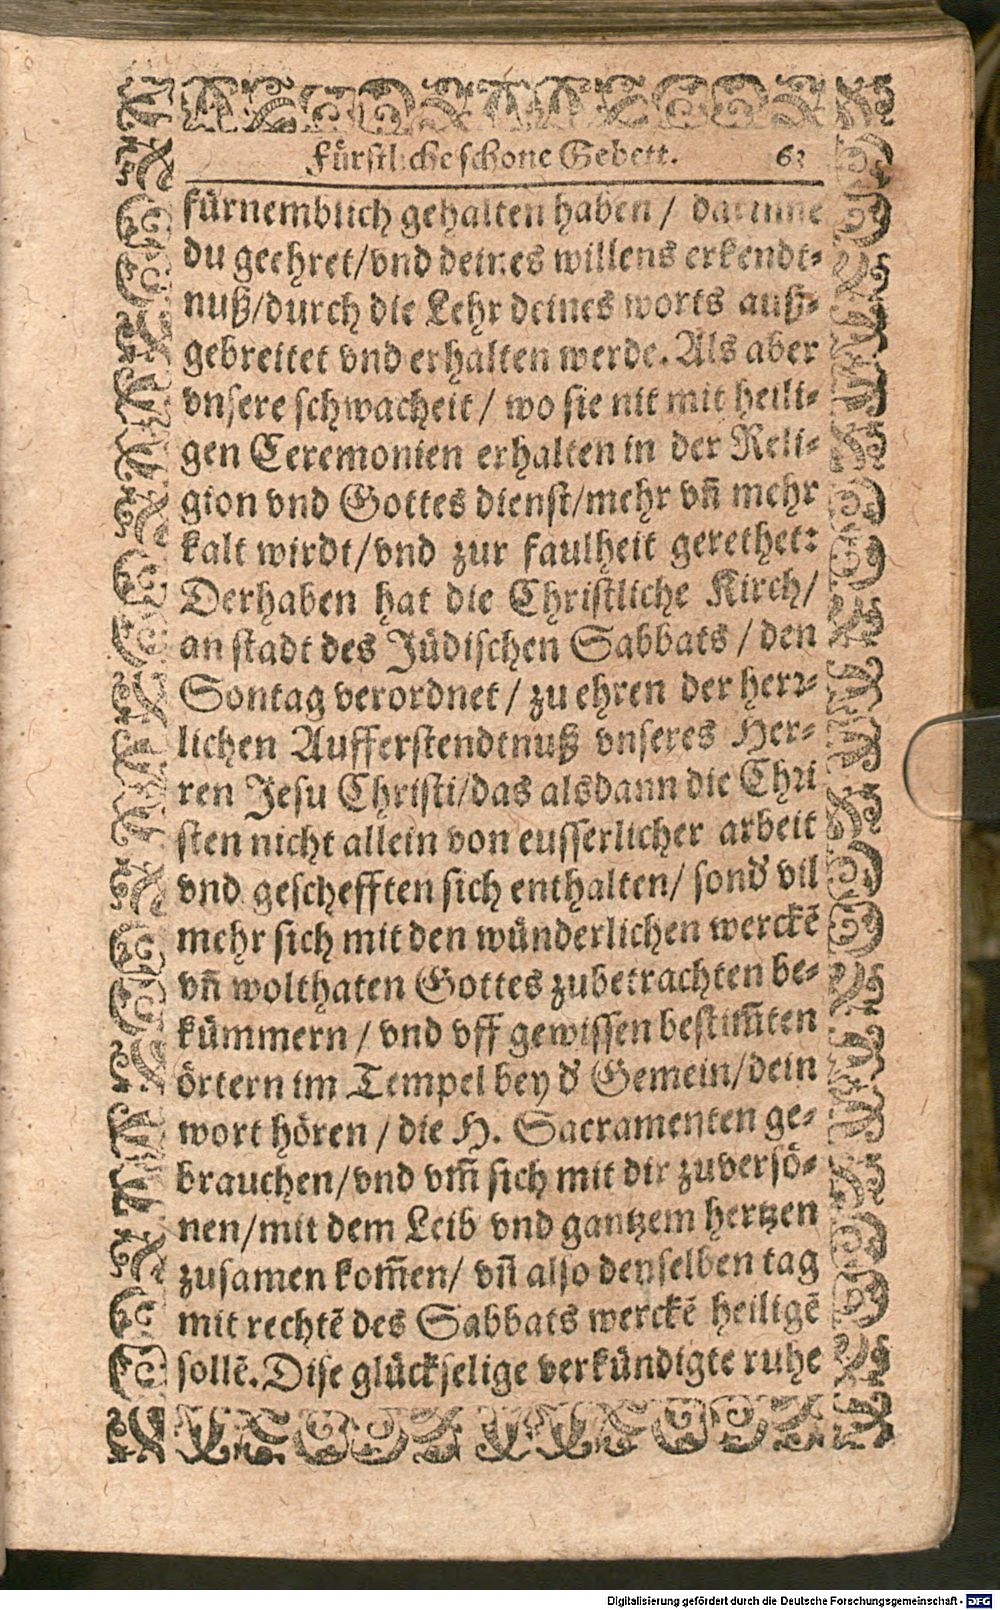 Fürstliche schone Gebett. 63
fürnemblich gehalten haben / darinne
du geehret/vnd deines willens erkendt-
nuß/durch die Lehr deines worts auß-
gebreitet vnd erhalten werde. Als aber
vnsere schwacheit / wo sie nit mit heili-
gen Ceremonien erhalten in der Reli-
gion vnd Gottes dienst/mehr vñ mehr
kalt wirdt/vnd zur faulheit gerethet:
Derhaben hat die Christliche Kirch/
an stadt des Jüdischen Sabbats / den
Sontag verordnet / zu ehren der herr-
lichen Aufferstendtnuß vnseres Her-
ren Jesu Christi/das alsdann die Chri
sten nicht allein von eusserlicher arbeit
vnd geschefften sich enthalten/ sond' vil
mehr sich mit den wünderlichen werckẽ
vñ wolthaten Gottes zubetrachten be-
kümmern / vnd vff gewissen bestim̃ten
örtern im Tempel bey d' Gemein/dein
wort hören / die H. Sacramenten ge-
brauchen/vnd vm̃ sich mit dir zuversö-
nen/mit dem Leib vnd gantzem hertzen
zusamen kom̃en/ vñ also denselben tag
mit rechtẽ des Sabbats werckẽ heiligẽ
sollẽ. Dise glückselige verkündigte ruhe
Digitalisierung gefördert durch die Deutsche Forschungsgemeinschaft - DFG